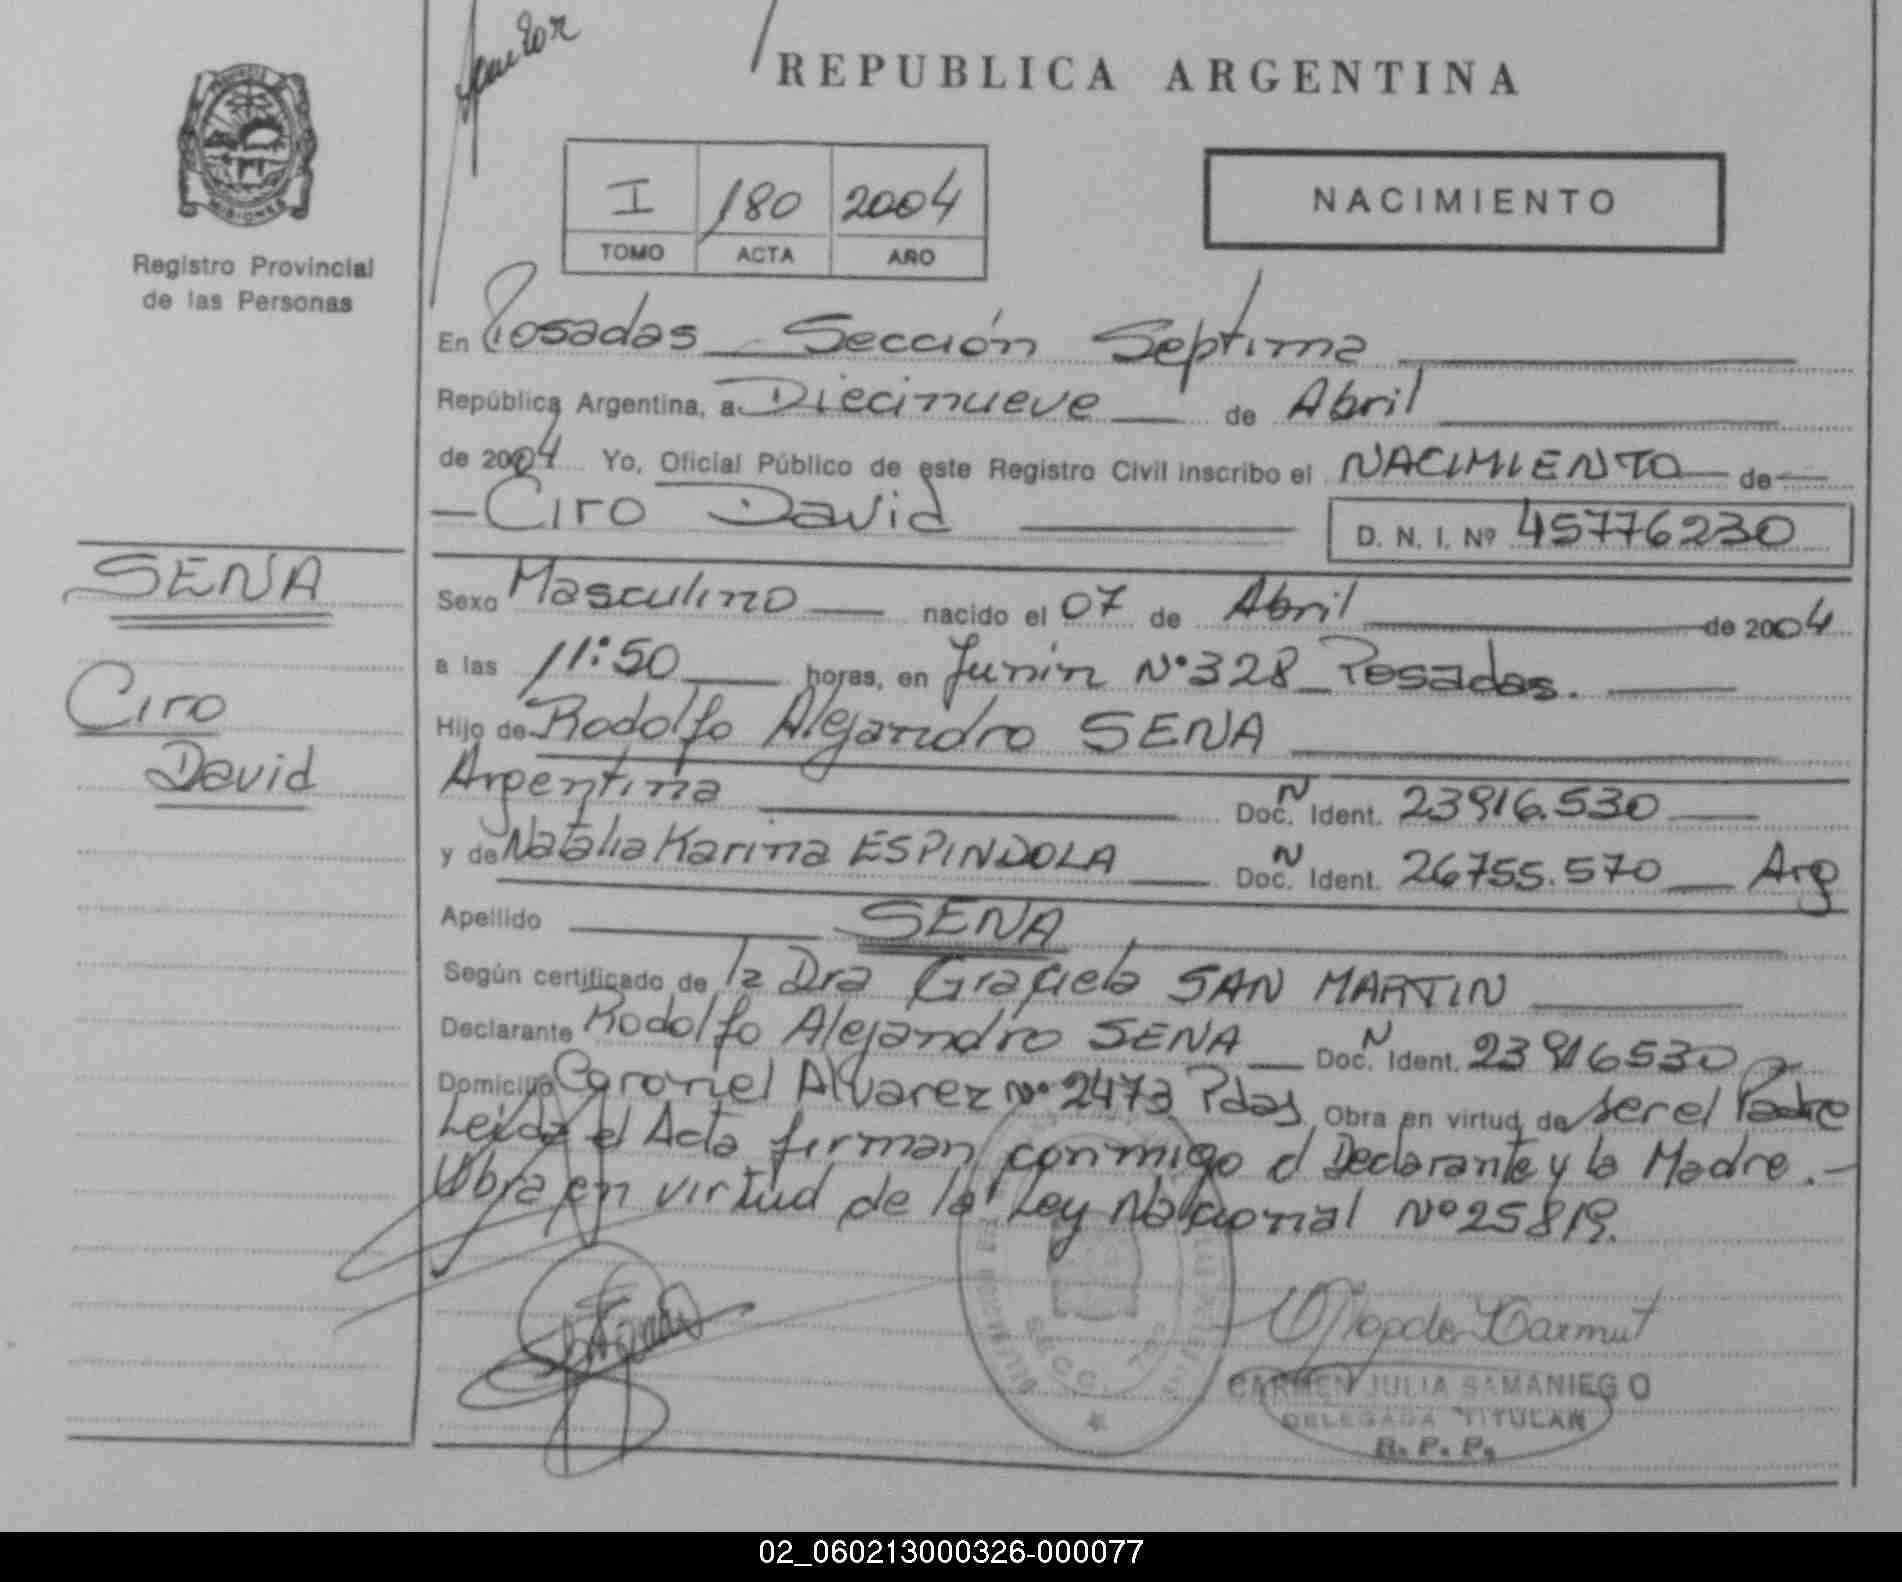 REPUBLICA ARGENTINA
MISIONES
Registro Provincial
de las Personas
I 180 2004
TOMO ACTA AÑO
NACIMIENTO
En Posadas Sección Septima
República Argentina, a Diecinueve de Abril
de 2004 Yo, Oficial Público de este Registro Civil inscribo el NACIMIENTO de
Ciro David D. N. I. Nº 45776230
SENA
Ciro
David
Sexo Masculino nacido el 07 de Abril de 2004
a las 11:50 horas, en Junin Nº 328 Posadas.
Hijo de Rodolfo Alejandro SENA
Argentina Doc. N Ident. 23916.530
y de Natalia Karina ESPINDOLA Doc. N Ident. 26755.570 Arg
Apellido SENA
Según certificado de la Dra Graciela SAN MARTIN
Declarante Rodolfo Alejandro SENA Doc. N Ident. 23916530
Domicilio Coronel Alvarez Nº 2473 Pdas Obra en virtud de ser el Padre
Leída el Acta firman conmigo el Declarante y la Madre.-
Obra en virtud de la Ley Nacional Nº 25819.
SECC. 7
CARMEN JULIA SAMANIEGO
DELEGADA TITULAR
R. P. P.
02_060213000326-000077